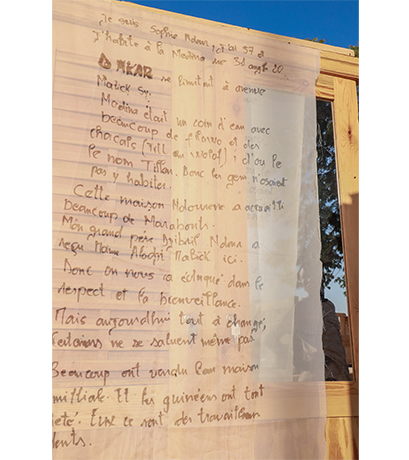 Je suis Sophie Ndour, j'ai 57 et
J'habite à la Medina rue 31 angle 20.
DAKAR se limitait à avenue
Malick Sy.
Medina était un coin d'eau avec
beaucoup de et des
chacals (Till en wolof) d'où le
le nom Tilléne. Donc les gens n'osaient
pas y habiter.
Cette maison Ndourenne a accueilli
beaucoup de Marabouts.
Mon grand père Djibril Ndour a
reçu Mame Abdou Malick ici.
Donc on nous a éduqué dans le
respect et la bienveillance.
Mais aujourd'hui tout à changé,
certaines ne se saluent même pas
Beaucoup ont vendu leur maison
familiale. Et les guinéens ont tout
acheté. Elle ce sont des travailleurs